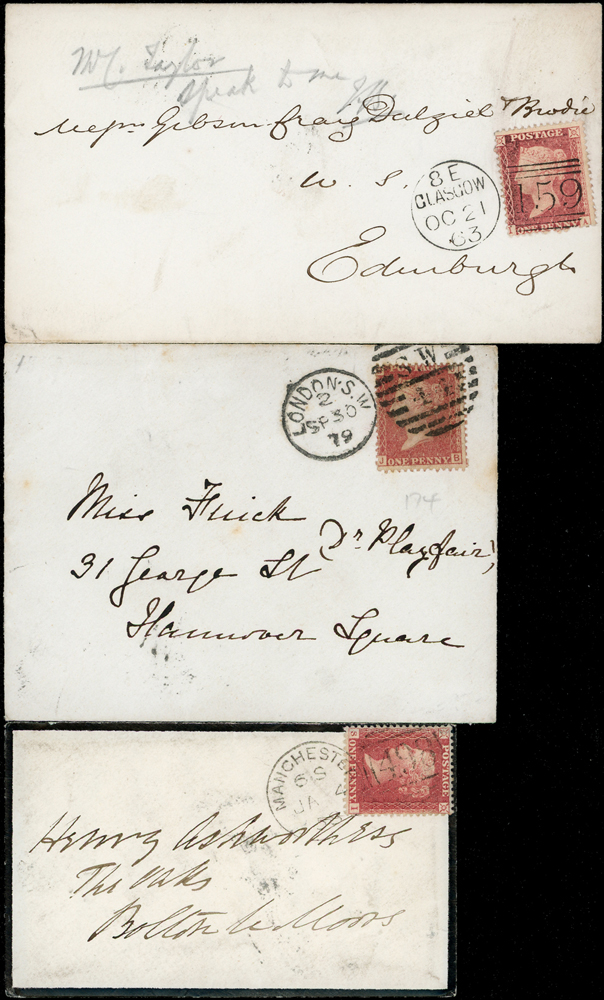 Wm Taylor
speak to me
Messrs Gibson Craig Dalziel & Brodie
W. S.
Edinburgh
8 E
GLASGOW
OC 21
63
POSTAGE
159
ONE PENNY
LONDON·S.W
2
SP 30
79
S.W
J ONE PENNY B
174
Miss Finick
(Dr Playfair)
31 George St
Hannover Square
MANCHESTE
6 S
JA 4
POSTAGE
498
S ONE PENNY I
Henry Ashworth Esq
The Oaks
Bolton le Moors